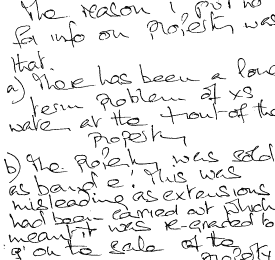 The reason I put no
for info on property was
that.
a) There has been a long
term problem of xs
water at the front of the
property
b) The property was sold
as band e. This was
misleading as extensions
had been carried out which
meant it was re-graded to
g on the sale of the
property